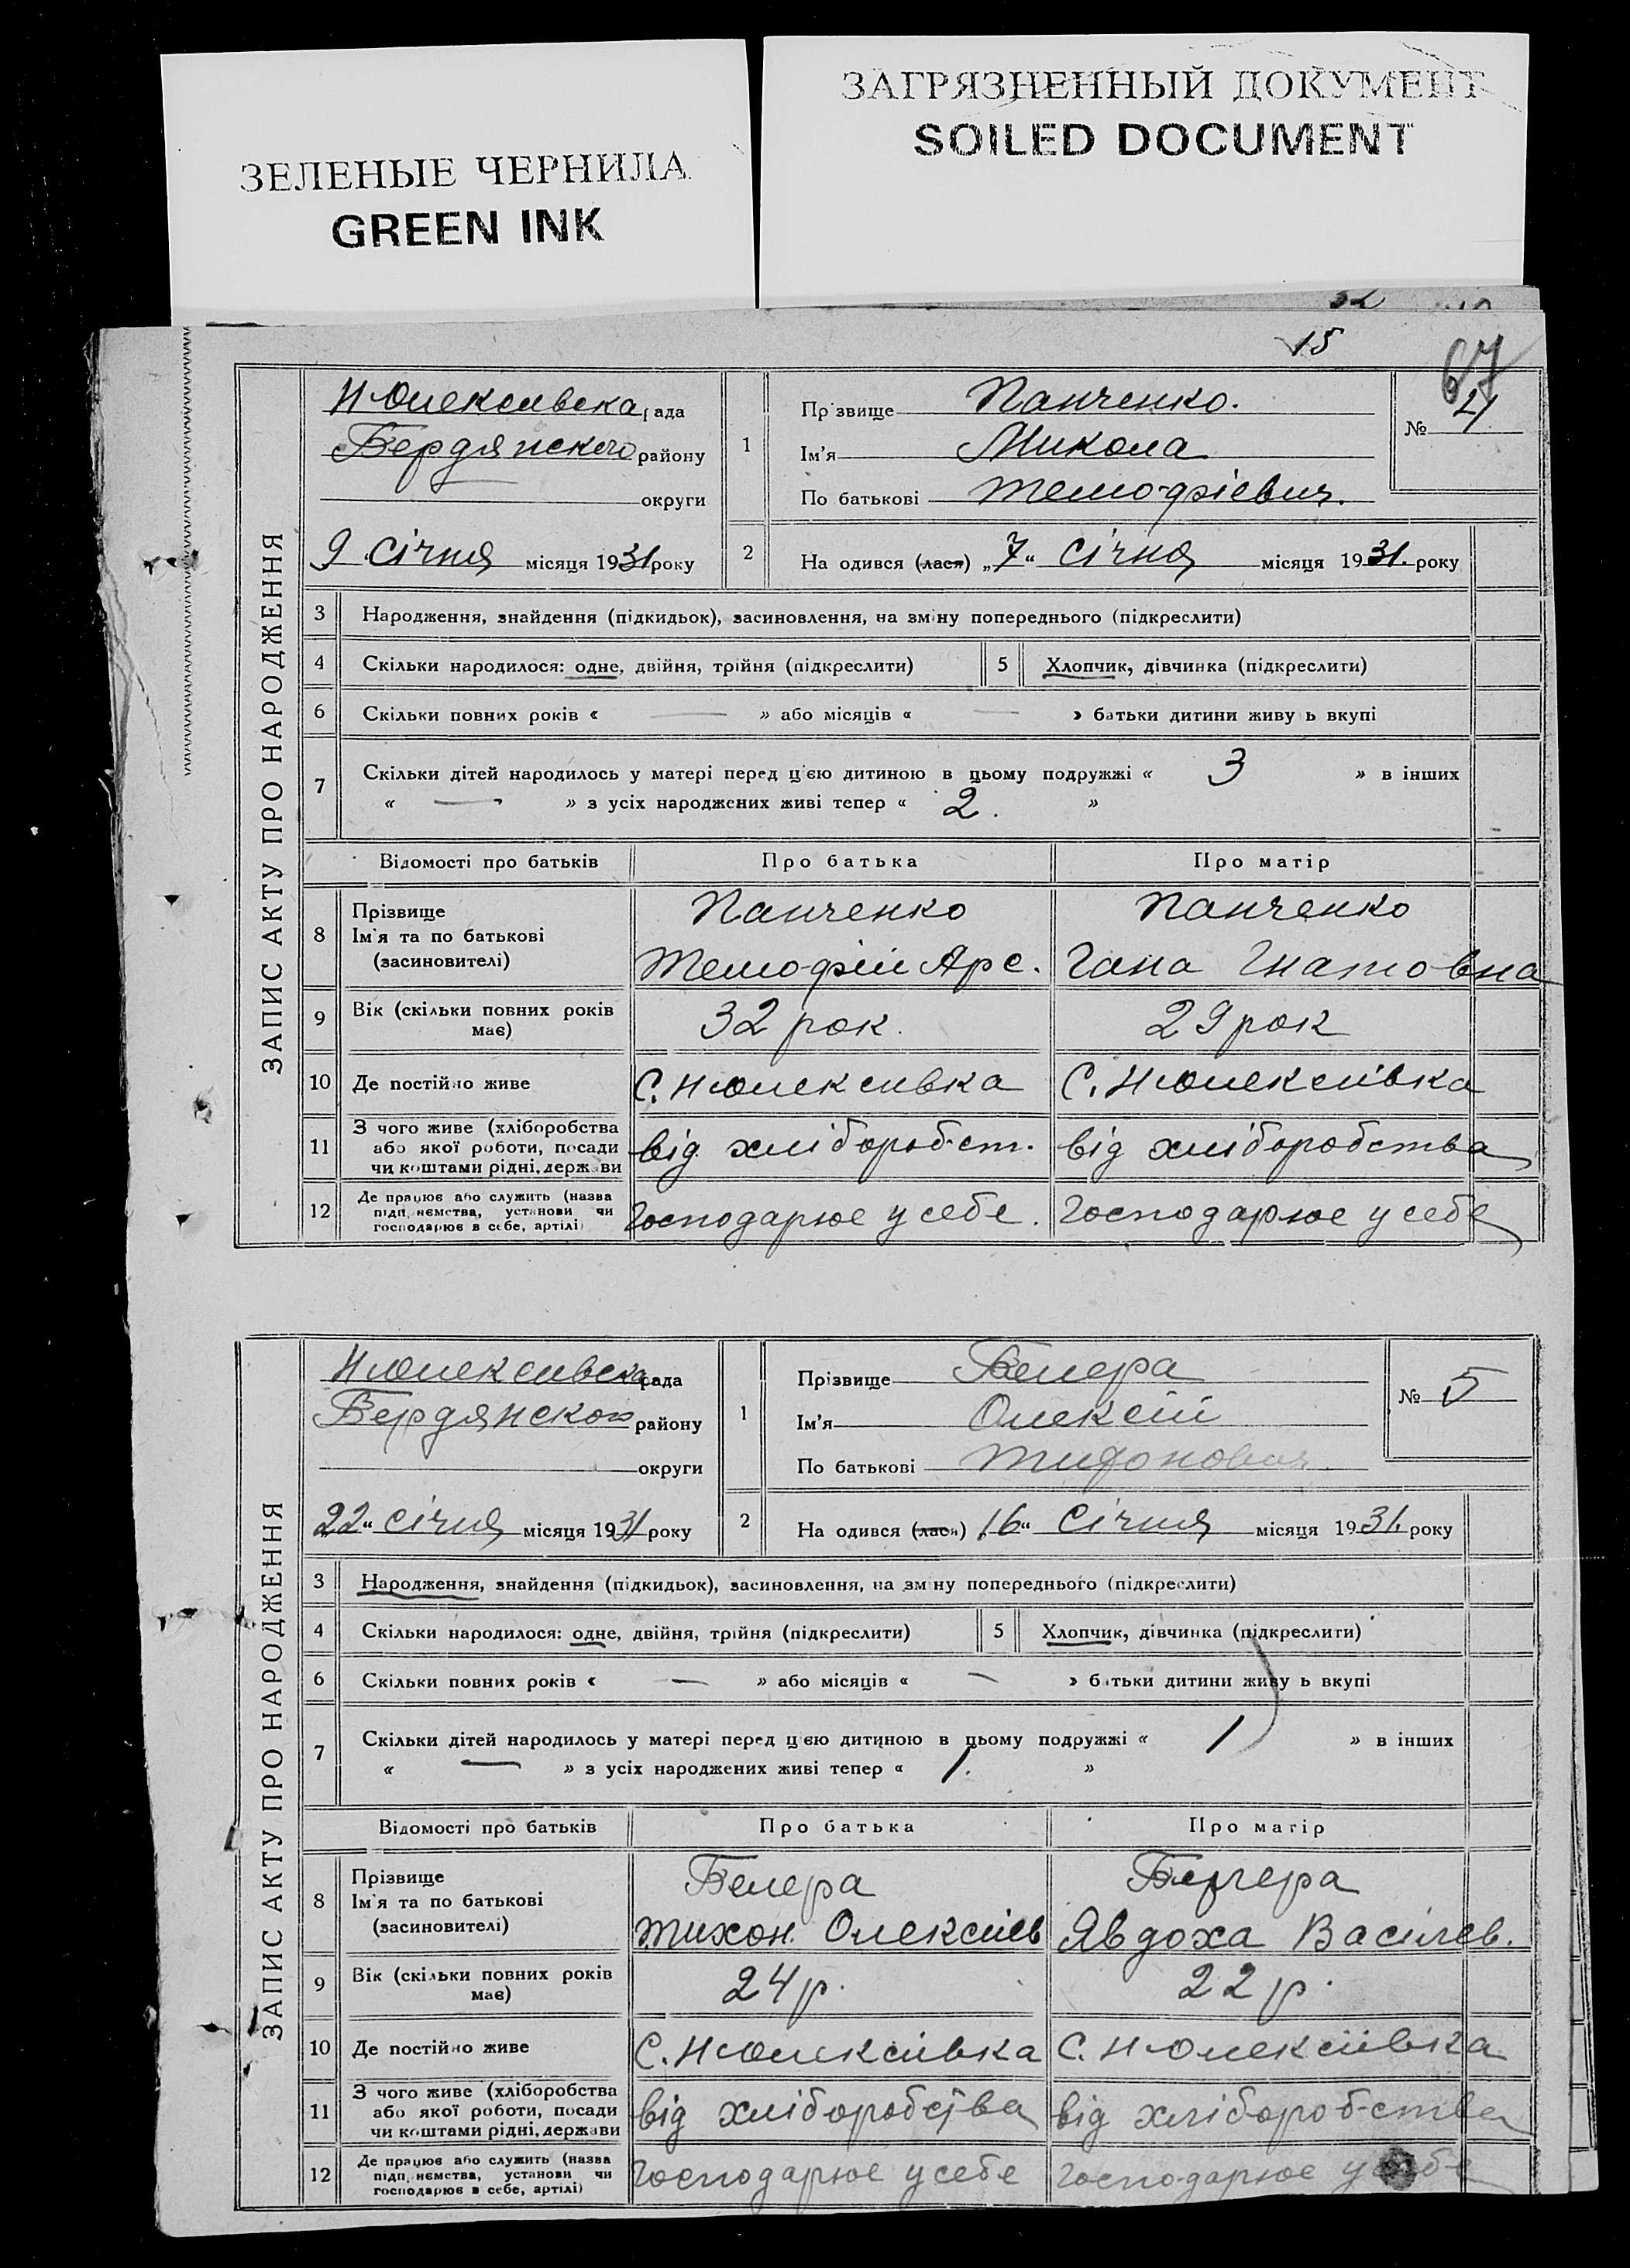 ЗЕЛЕНЫЕ ЧЕРНИЛА
GREEN INK
ЗАГРЯЗНЕННЫЙ ДОКУМЕНТ
SOILED DOCUMENT
15
67
ЗАПИС АКТУ ПРО НАРОДЖЕННЯ
Н Олексивска рада
Бердянского району
округи
9 січня місяця 1931 року
1
Прізвище Панченко.
Ім'я Микола
По батькові Темофієвич.
№ 4
2 На одився (лася) „7“ січня місяця 1931. року
3 Народження, знайдення (підкидьок), засиновлення, на зміну попереднього (підкреслити)
4 Скільки народилося: одне, двійня, трійня (підкреслити) 5 Хлопчик, дівчинка (підкреслити)
6 Скільки повних років « — » або місяців « — » батьки дитини живу ь вкупі
7 Скільки дітей народилось у матері перед цією дитиною в цьому подружжі « 3 » в інших
« — » з усіх народжених живі тепер « 2. »
Відомості про батьків Про батька Про матір
8 Прізвище
Ім'я та по батькові
(засиновителі)
Панченко
Темофій Арс.
Панченко
Гана Гнатовна
9 Вік (скільки повних років має) 32 рок. 29 рок
10 Де постійно живе С. Н Олексивка С. Н Олексиівка
11 З чого живе (хліборобства
або якої роботи, посади
чи коштами рідні, держави
від хліборобст. від хліборобства
12 Де працює або служить (назва
підп. немства, установи чи
господарює в себе, артілі)
Господарює у себе. Господарює у себе
ЗАПИС АКТУ ПРО НАРОДЖЕННЯ
Н Олексивска рада
Бердянского району
округи
22“ січня місяця 1931 року
1
Прізвище Белера
Ім'я Олексій
По батькові
№ 5
2 На одився (лася) „16“ січня місяця 1931. року
3 Народження, знайдення (підкидьок), засиновлення, на зміну попереднього (підкреслити)
4 Скільки народилося: одне, двійня, трійня (підкреслити) 5 Хлопчик, дівчинка (підкреслити)
6 Скільки повних років « — » або місяців « — » батьки дитини живу ь вкупі
7 Скільки дітей народилось у матері перед цією дитиною в цьому подружжі « 1 » в інших
« — » з усіх народжених живі тепер « 1. »
Відомості про батьків Про батька Про матір
8 Прізвище
Ім'я та по батькові
(засиновителі)
Белера
Тихон Олексиів
Явдоха Васілев.
9 Вік (скільки повних років має) 24 р. 22 р.
10 Де постійно живе С. Н Олексиівка С. Н Олексиівка
11 З чого живе (хліборобства
або якої роботи, посади
чи коштами рідні, держави
від хліборобства від хліборобства
12 Де працює або служить (назва
підп. немства, установи чи
господарює в себе, артілі)
Господарює у себе Господарює у себе